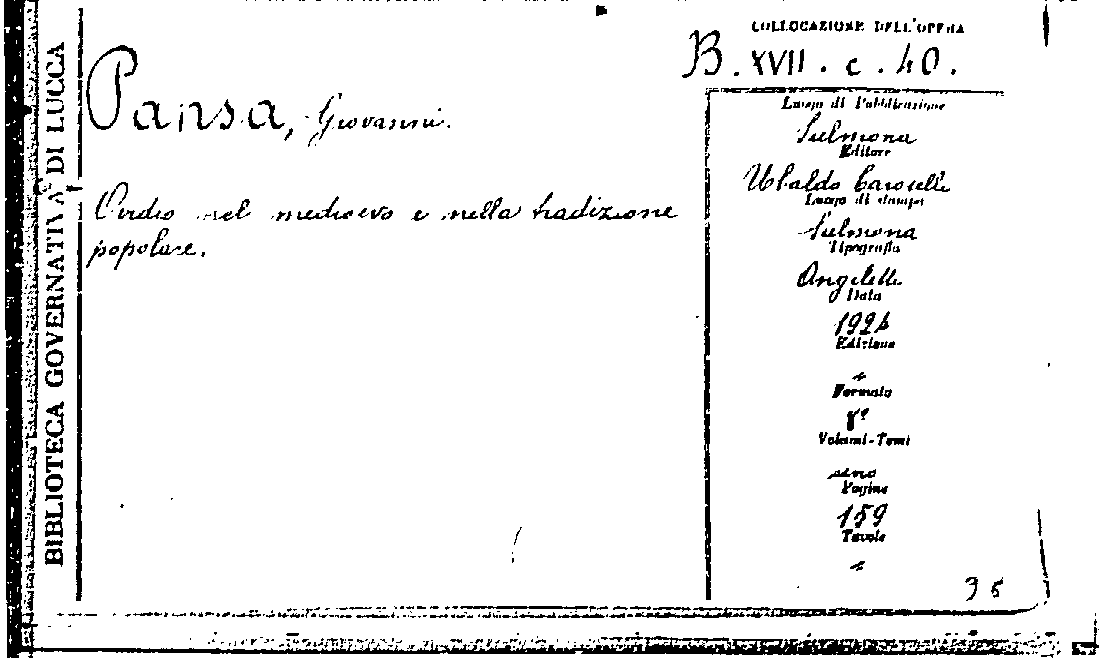 BIBLIOTECA GOVERNATIVA DI LUCCA
COLLOCAZIONE DELL'OPERA
B. XVII. c. 40.
Pansa, Giovanni.
Ovidio nel medioevo e nella tradizione
popolare.
Luogo di Pubblicazione
Sulmona
Editore
Ubaldo Caroselli
Luogo di stampa
Sulmona
Tipografia
Angeletti
Data
1924
Edizione
Formato
8°
Volumi-Tomi
uno
Pagine
159
Tavole